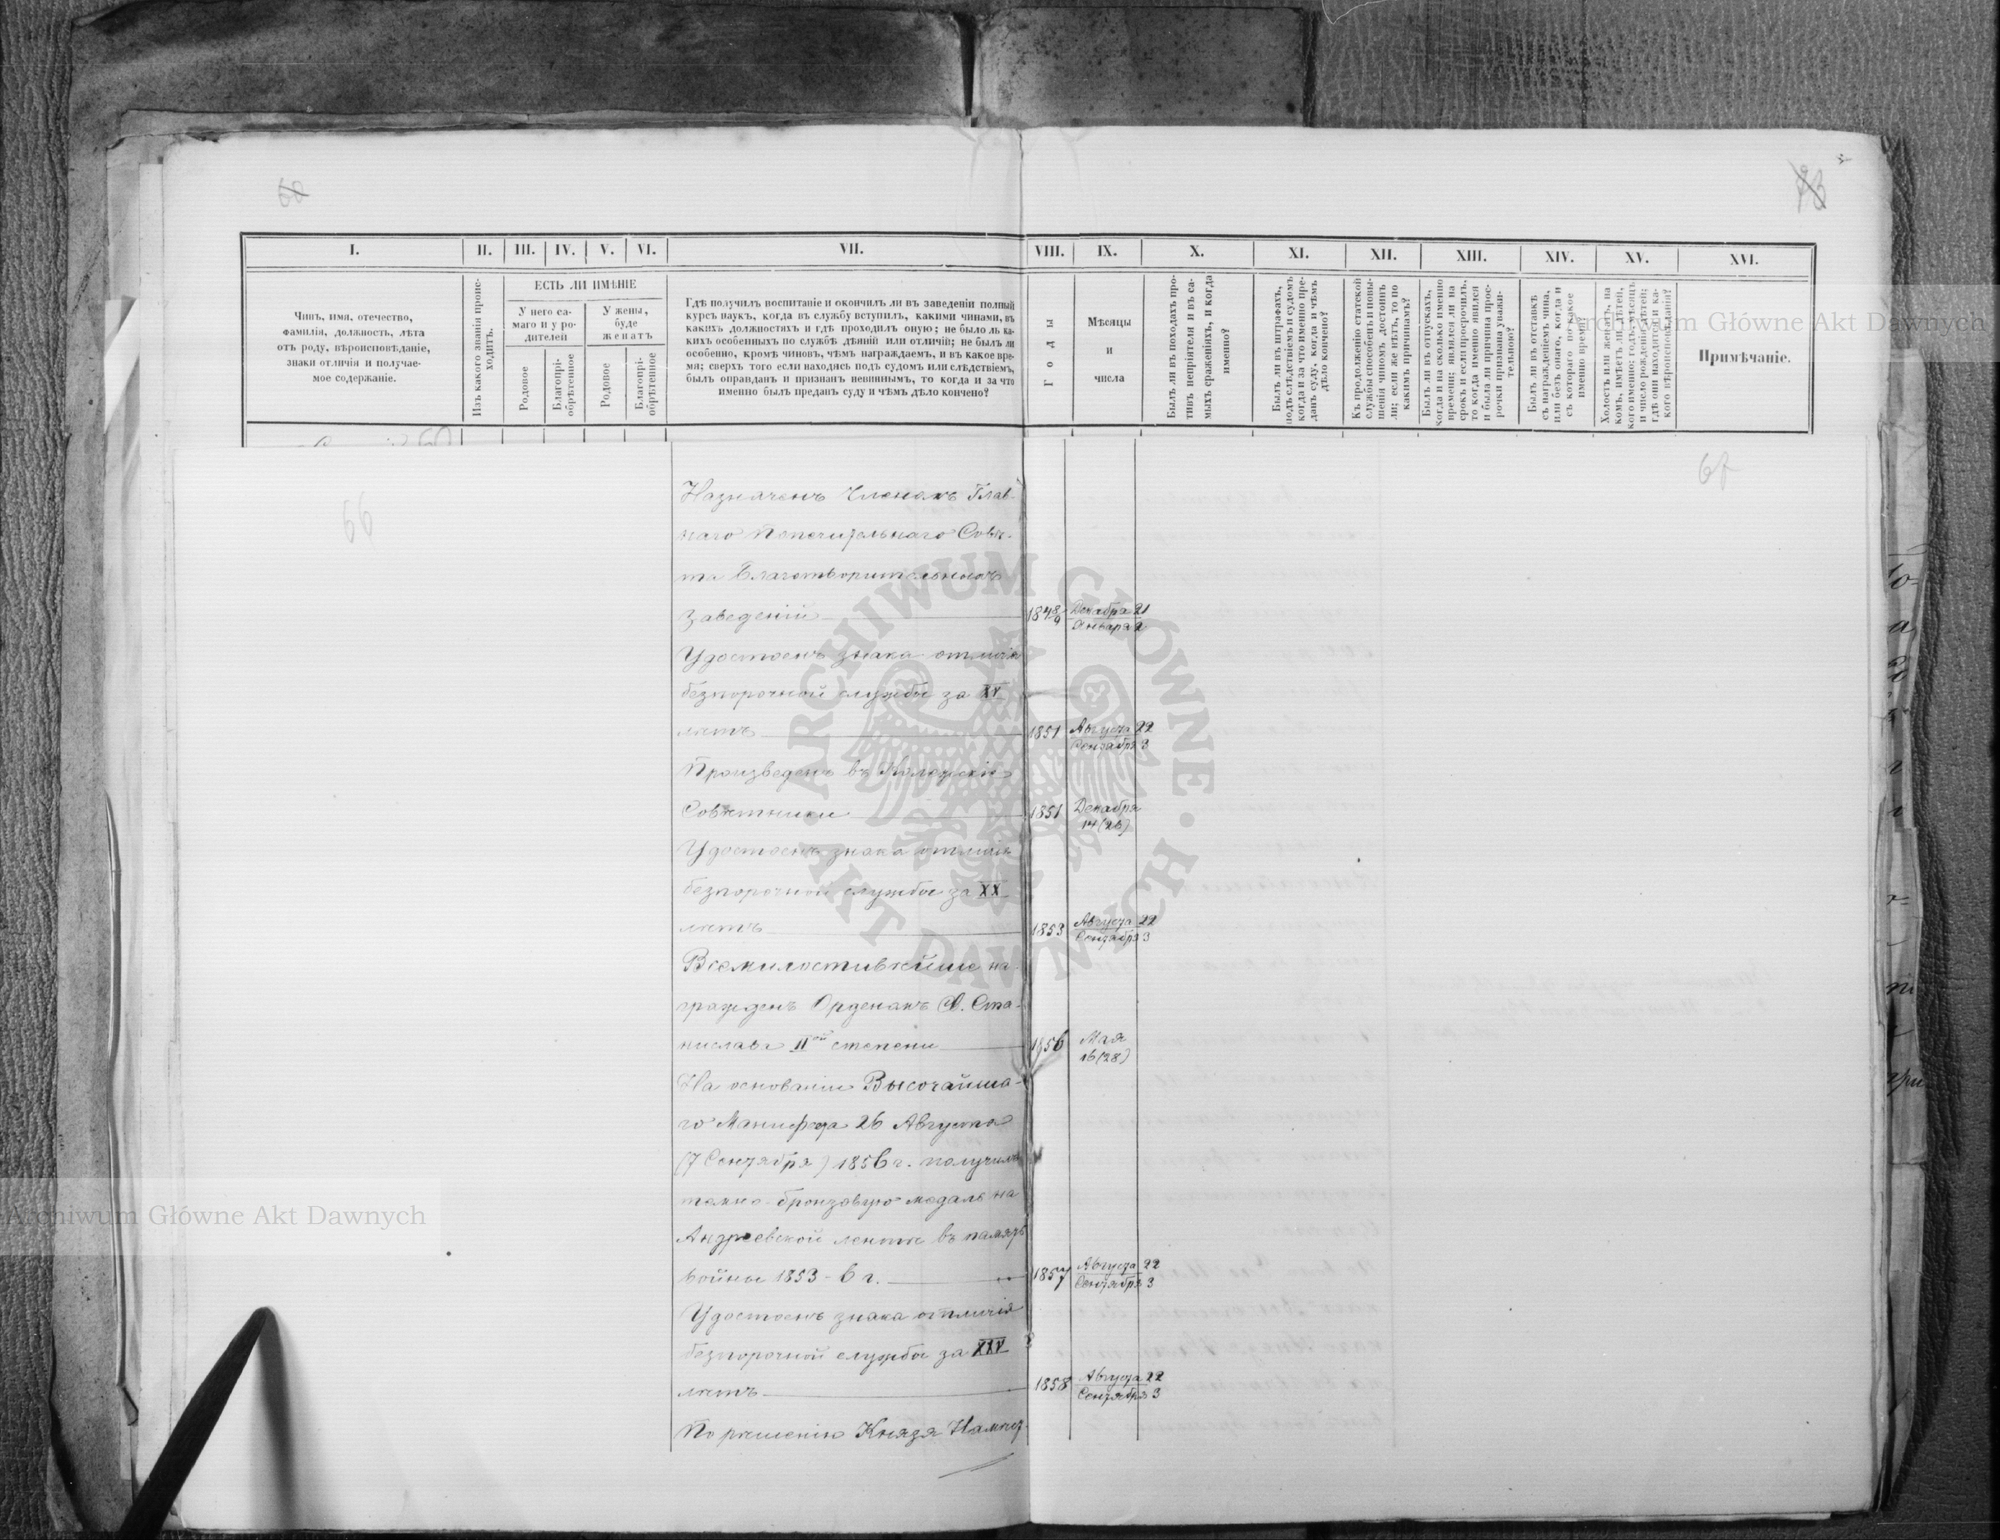 60
73
I. II. III. IV. V. VI. VII. VIII. IX. X. XI. XII. XIII. XIV. XV. XVI.
Чинъ, имя, отечество,
фамилія, должность, лѣта
отъ роду, вѣроисповѣданіе,
знаки отличія и получае-
мое содержаніе.
Изъ какого званія проис-
ходитъ.
ЕСТЬ ЛИ ИМѢНІЕ
У него са-
маго и у ро-
дителей
У жены,
буде
женатъ
Родовое
Благопрі-
обрѣтенное
Родовое
Благопрі-
обрѣтенное
Гдѣ получилъ воспитаніе и окончилъ ли въ заведеніи полный
курсъ наукъ, когда въ службу вступилъ, какими чинами, въ
какихъ должностяхъ и гдѣ проходилъ оную; не было ль ка-
кихъ особенныхъ по службѣ дѣяній или отличій; не былъ ли
особенно, кромѣ чиновъ, чѣмъ награждаемъ, и въ какое вре-
мя; сверхъ того если находясь подъ судомъ или слѣдствіемъ,
былъ оправданъ и признанъ невиннымъ, то когда и за что
именно былъ преданъ суду и чѣмъ дѣло кончено?
Годы
Мѣсяцы
и
числа
Былъ ли въ походахъ про-
тивъ непріятеля и въ са-
мыхъ сраженіяхъ, и когда
именно?
Былъ ли въ штрафахъ,
подъ слѣдствіемъ и судомъ
когда и за что именно пре-
данъ суду, когда и чѣмъ
дѣло кончено?
Къ продолженію статской
службы способенъ и повы-
шенія чиномъ достоинъ
ли; если же нѣтъ, то по
какимъ причинамъ?
Былъ ли въ отпускахъ,
когда и на сколько именно
времени; являлся ли на
срокъ и если просрочилъ,
то когда именно явился
и была ли причина прос-
рочки признана уважи-
тельною?
Былъ ли въ отставкѣ
съ награжденіемъ чина,
или безъ онаго, когда и
съ котораго по какое
именно время?
Холостъ или женатъ, на
комъ, имѣетъ ли дѣтей,
кого именно; годъ, мѣсяцъ
и число рожденія дѣтей;
гдѣ они находятся и ка-
кого вѣроисповѣданія?
Примѣчаніе.
66
67
Назначенъ Членомъ Глав-
наго Попечительнаго Совѣ-
та Благотворительныхъ
Заведеній 1848/9 Декабря 21 Января 2
Удостоенъ знака отличія
безпорочной службы за XV
лѣтъ 1851 Августа 22 Сентября 3
Произведенъ въ Колежскіе
Совѣтники 1851 Декабря 14 (26)
Удостоенъ знака отличія
безпорочной службы за XX
лѣтъ 1853 Августа 22 Сентября 3
Всемилостивѣйше на-
гражденъ Орденомъ Св. Ста-
нислава IIой степени 1856 Мая 16 (28)
На основаніи Высочайша-
го Манифеста 26 Августа
(7 Сентября) 1856 г. получилъ
темно-бронзовую медаль на
Андреевской лентѣ въ память
войны 1853-6 г. 1857 Августа 22 Сентября 3
Удостоенъ знака отличія
безпорочной службы за XXV
лѣтъ 1858 Августа 22 Сентября 3
По рѣшенію Князя Намѣст-
Archiwum Główne Akt Dawnych
Archiwum Główne Akt Dawnych
ARCHIWUM GŁÓWNE AKT DAWNYCH